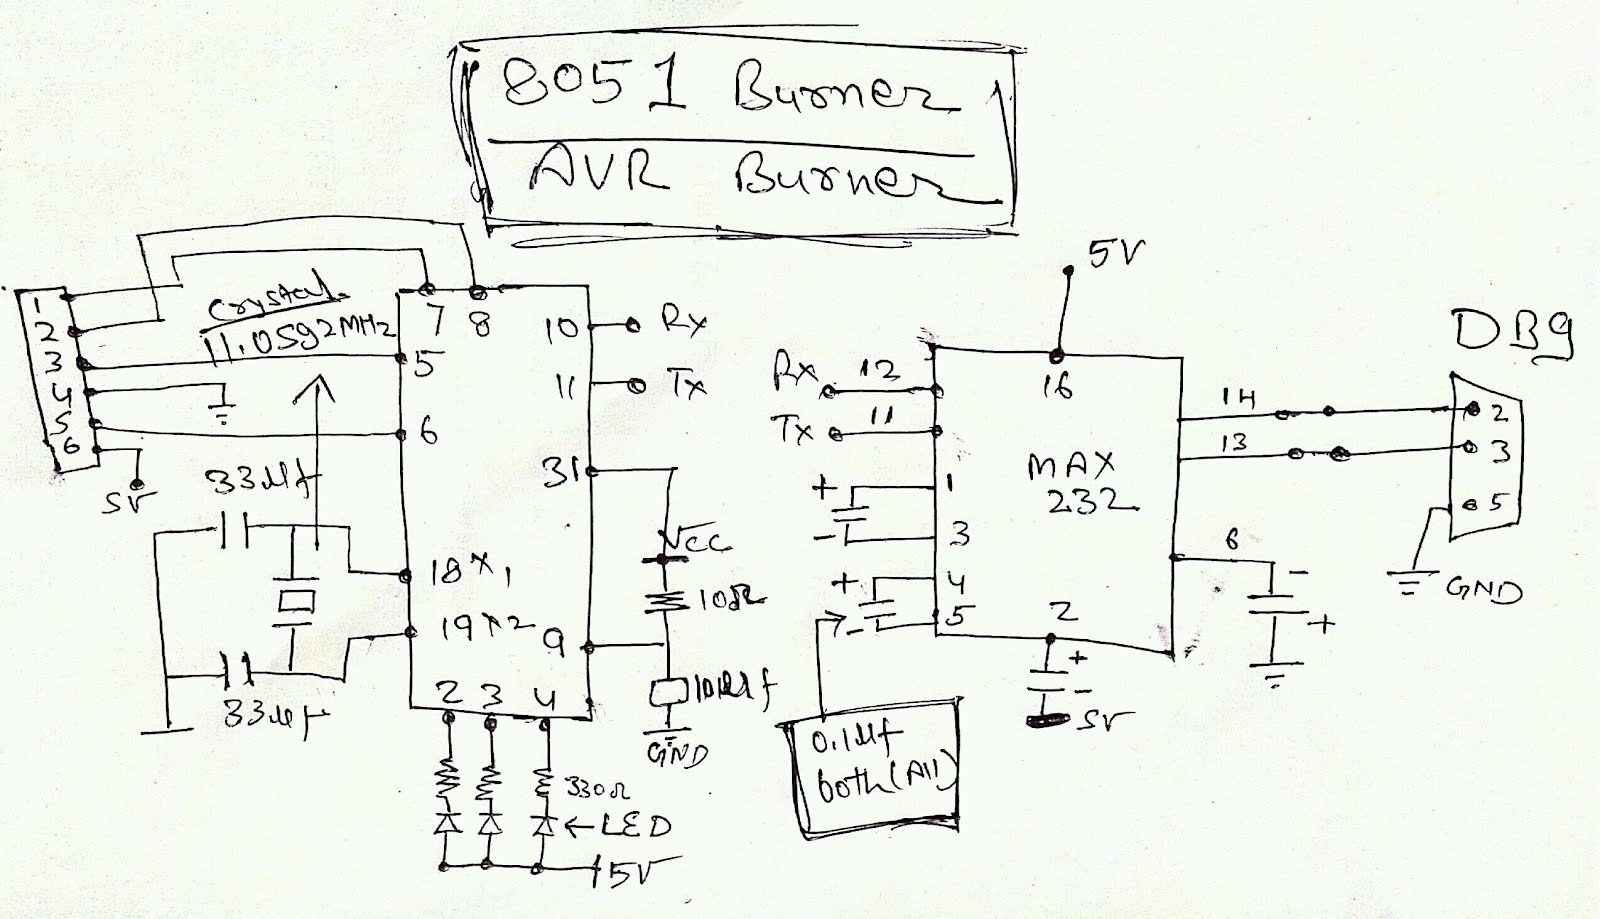 8051 Burner
AVR Burner
1
2
3
4
5
6
5V
Crystal
11.0592MHz
33µf
33µf
7
8
5
6
10 Rx
11 Tx
31
VCC
18 X1
19 X2
9
10Ω
10µf
GND
2 3 4
330Ω
←LED
5V
5V
16
Rx 12
Tx 11
MAX
232
+ 1
- 3
+ 4
- 5
14
13
6
-
+
2
+
-
5V
0.1µf
both(All)
DB9
2
3
5
GND